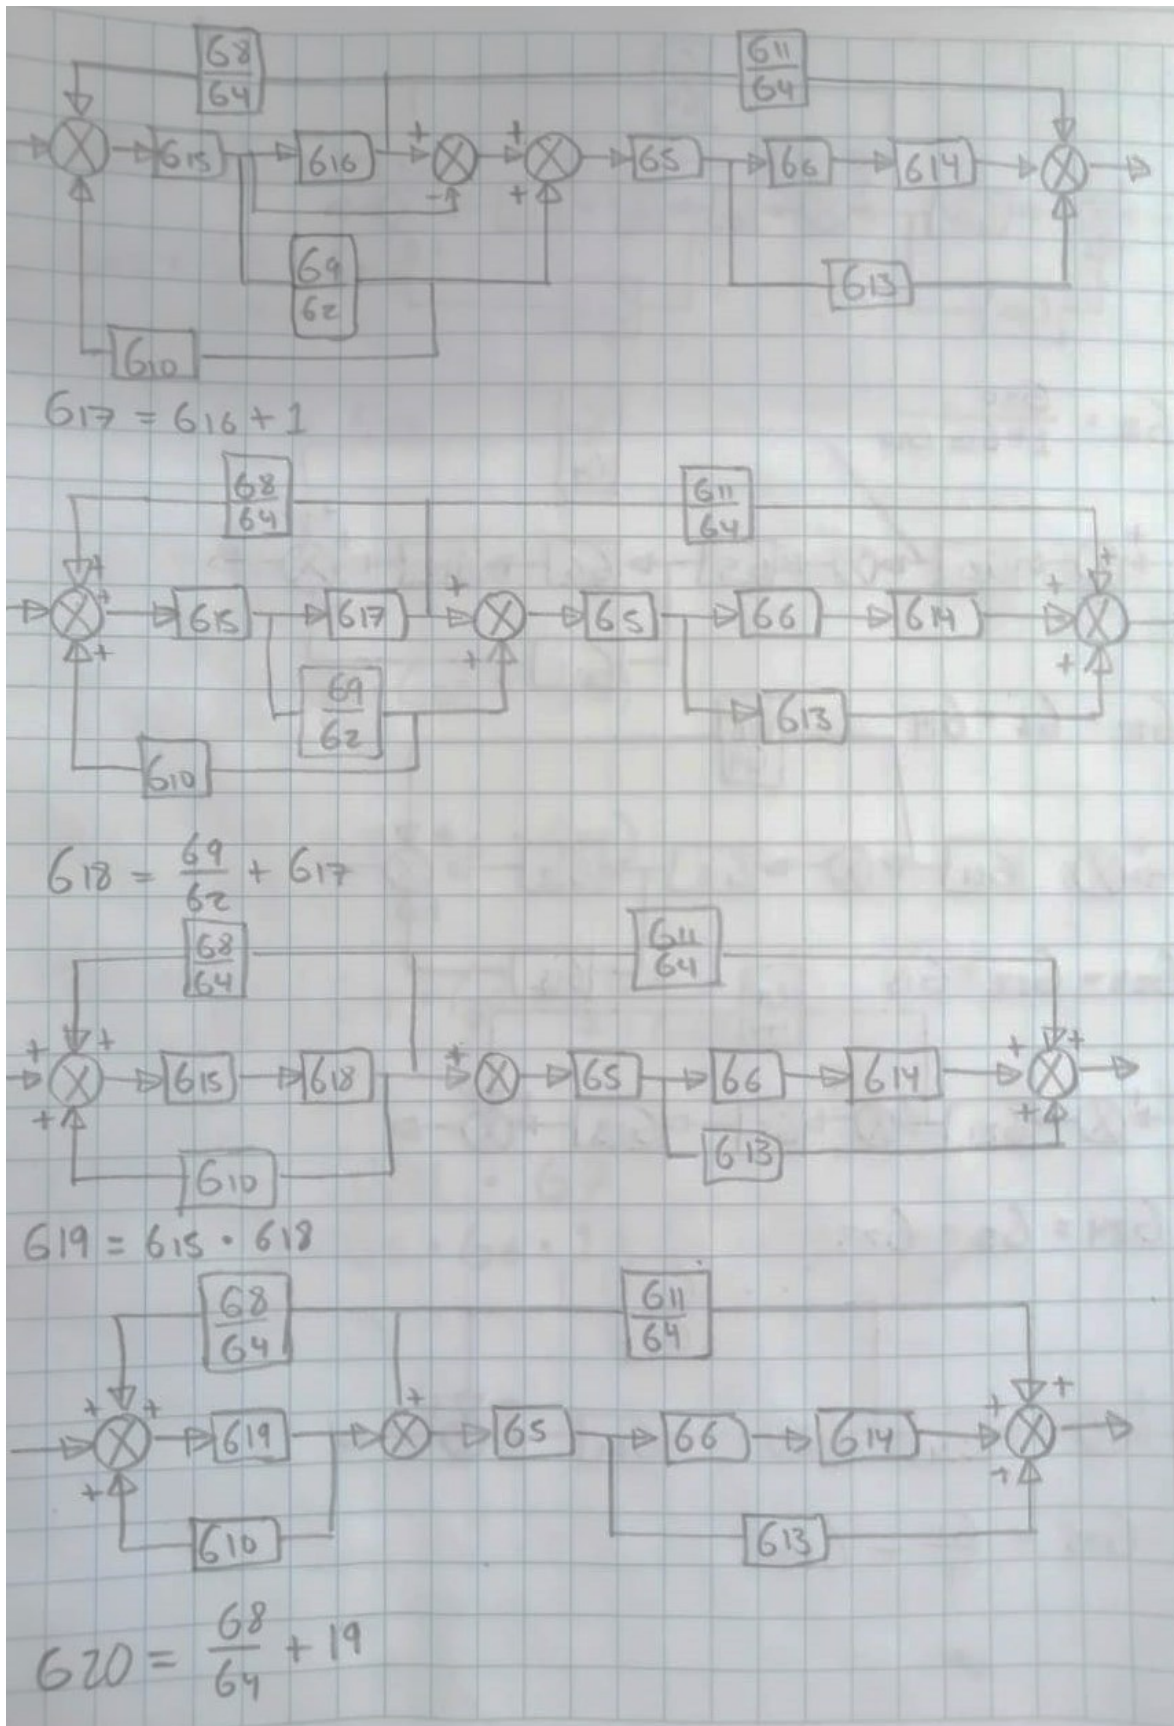 G8 G11
G4 G4
+ +
G15 G16 G5 G6 G14
- +
G9
G2
G13
G10
G17 = G16 + 1
G8 G11
G4 G4
+ +
+ + + G15 G17 G5 G6 G14
+ + +
G9
G2
G13
G10
G18 = G9/G2 + G17
G8 G11
G4 G4
+ + + + +
G15 G18 G5 G6 G14
+ +
G10 G13
G19 = G15 · G18
G8 G11
G4 G4
+ + + + +
G19 G5 G6 G14
+ +
G10 G13
G20 = G8/G4 + 19